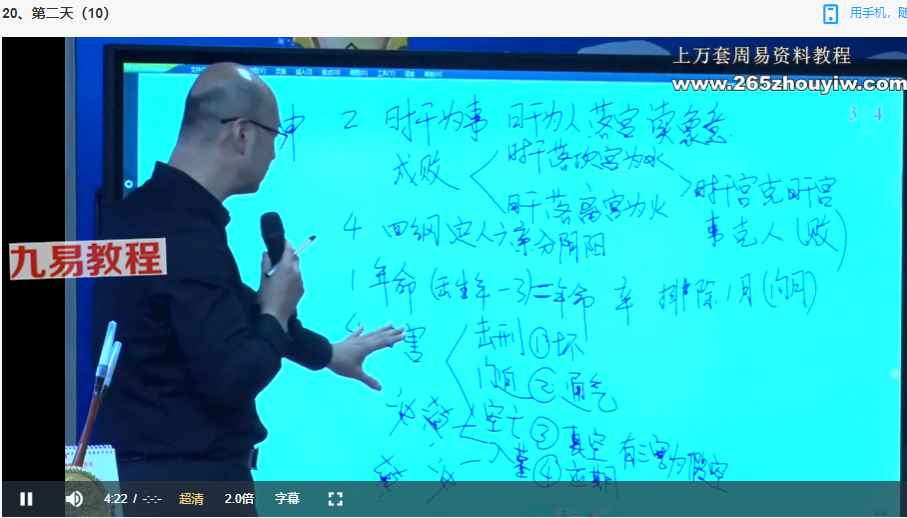 20、第二天（10）
用手机，随
上万套周易资料教程
www.265zhouyiw.com
3 4
冲 2 时干为事 日干为人 落宫 读象意
成败
时干落坎宫为水
日干落离宫为火
时干宫克日干宫
事克人(败)
4 四纲 定人六亲分阴阳
九易教程
1 年命(出生年-3)=年命 年 排除1月(闰月)
害 击刑 ①坏
② 通气
空亡 ③ 真空 有三宫为假空
入墓 ④ 应期
4:22 / -:-:- 超清 2.0倍 字幕